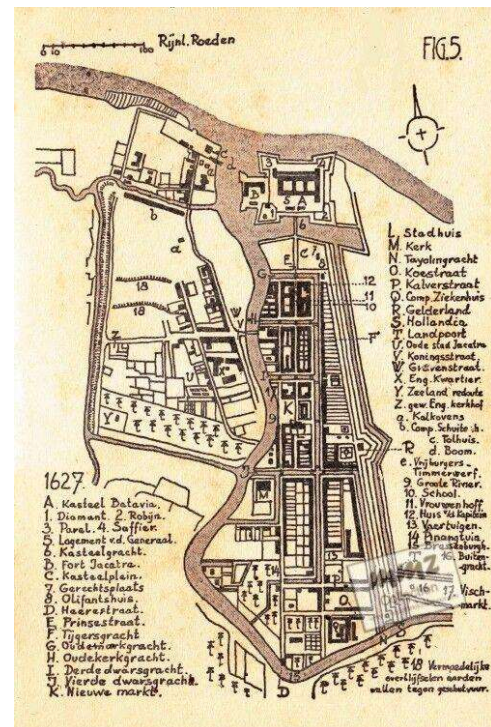 Rijnl. Roeden
0 10 100
FIG.5.
L. Stadhuis
M. Kerk
N. Tayolingracht
O. Koestraat
P. Kalverstraat
Q. Comp. Ziekenhuis
R. Gelderland
S. Hollandia
T. Landpoort
U. Oude stad Jacatra
V. Koningsstraat
W. Gravenstraat.
X. Eng. Kwartier
Y. Zeeland redoute
Z. gew. Eng. kerkhof
a. Kalkovens
b. Comp. Schuite h.
c. Tolhuis.
d. Boom.
e. Vrijburgers-
Timmerwerf.
9. Groote Rivier.
10. School.
11. Vrouwenhoff
12. Huis v/d Kapitein
13. Vaertuigen.
14 Pinangtuin.
16. Buiten-
gracht.
17. Visch-
markt.
18 Vermoedelijke
overblijfselen aarden
wallen tegen geschutvuur.
1627
A. Kasteel Batavia.
1. Diamant. 2. Robijn.
3. Parel. 4. Saffier.
5. Logement v.d. Generaal.
6. Kasteelgracht.
B. Fort Jacatra.
C. Kasteelplein.
7. Gerechtsplaats
8. Olifantshuis.
D. Heerestraat.
E. Prinsestraat.
F. Tijgersgracht
G. Oudemarkgracht.
H. Oudekerkgracht.
I. Derde dwarsgracht.
J. Vierde dwarsgracht.
K. Nieuwe markt.